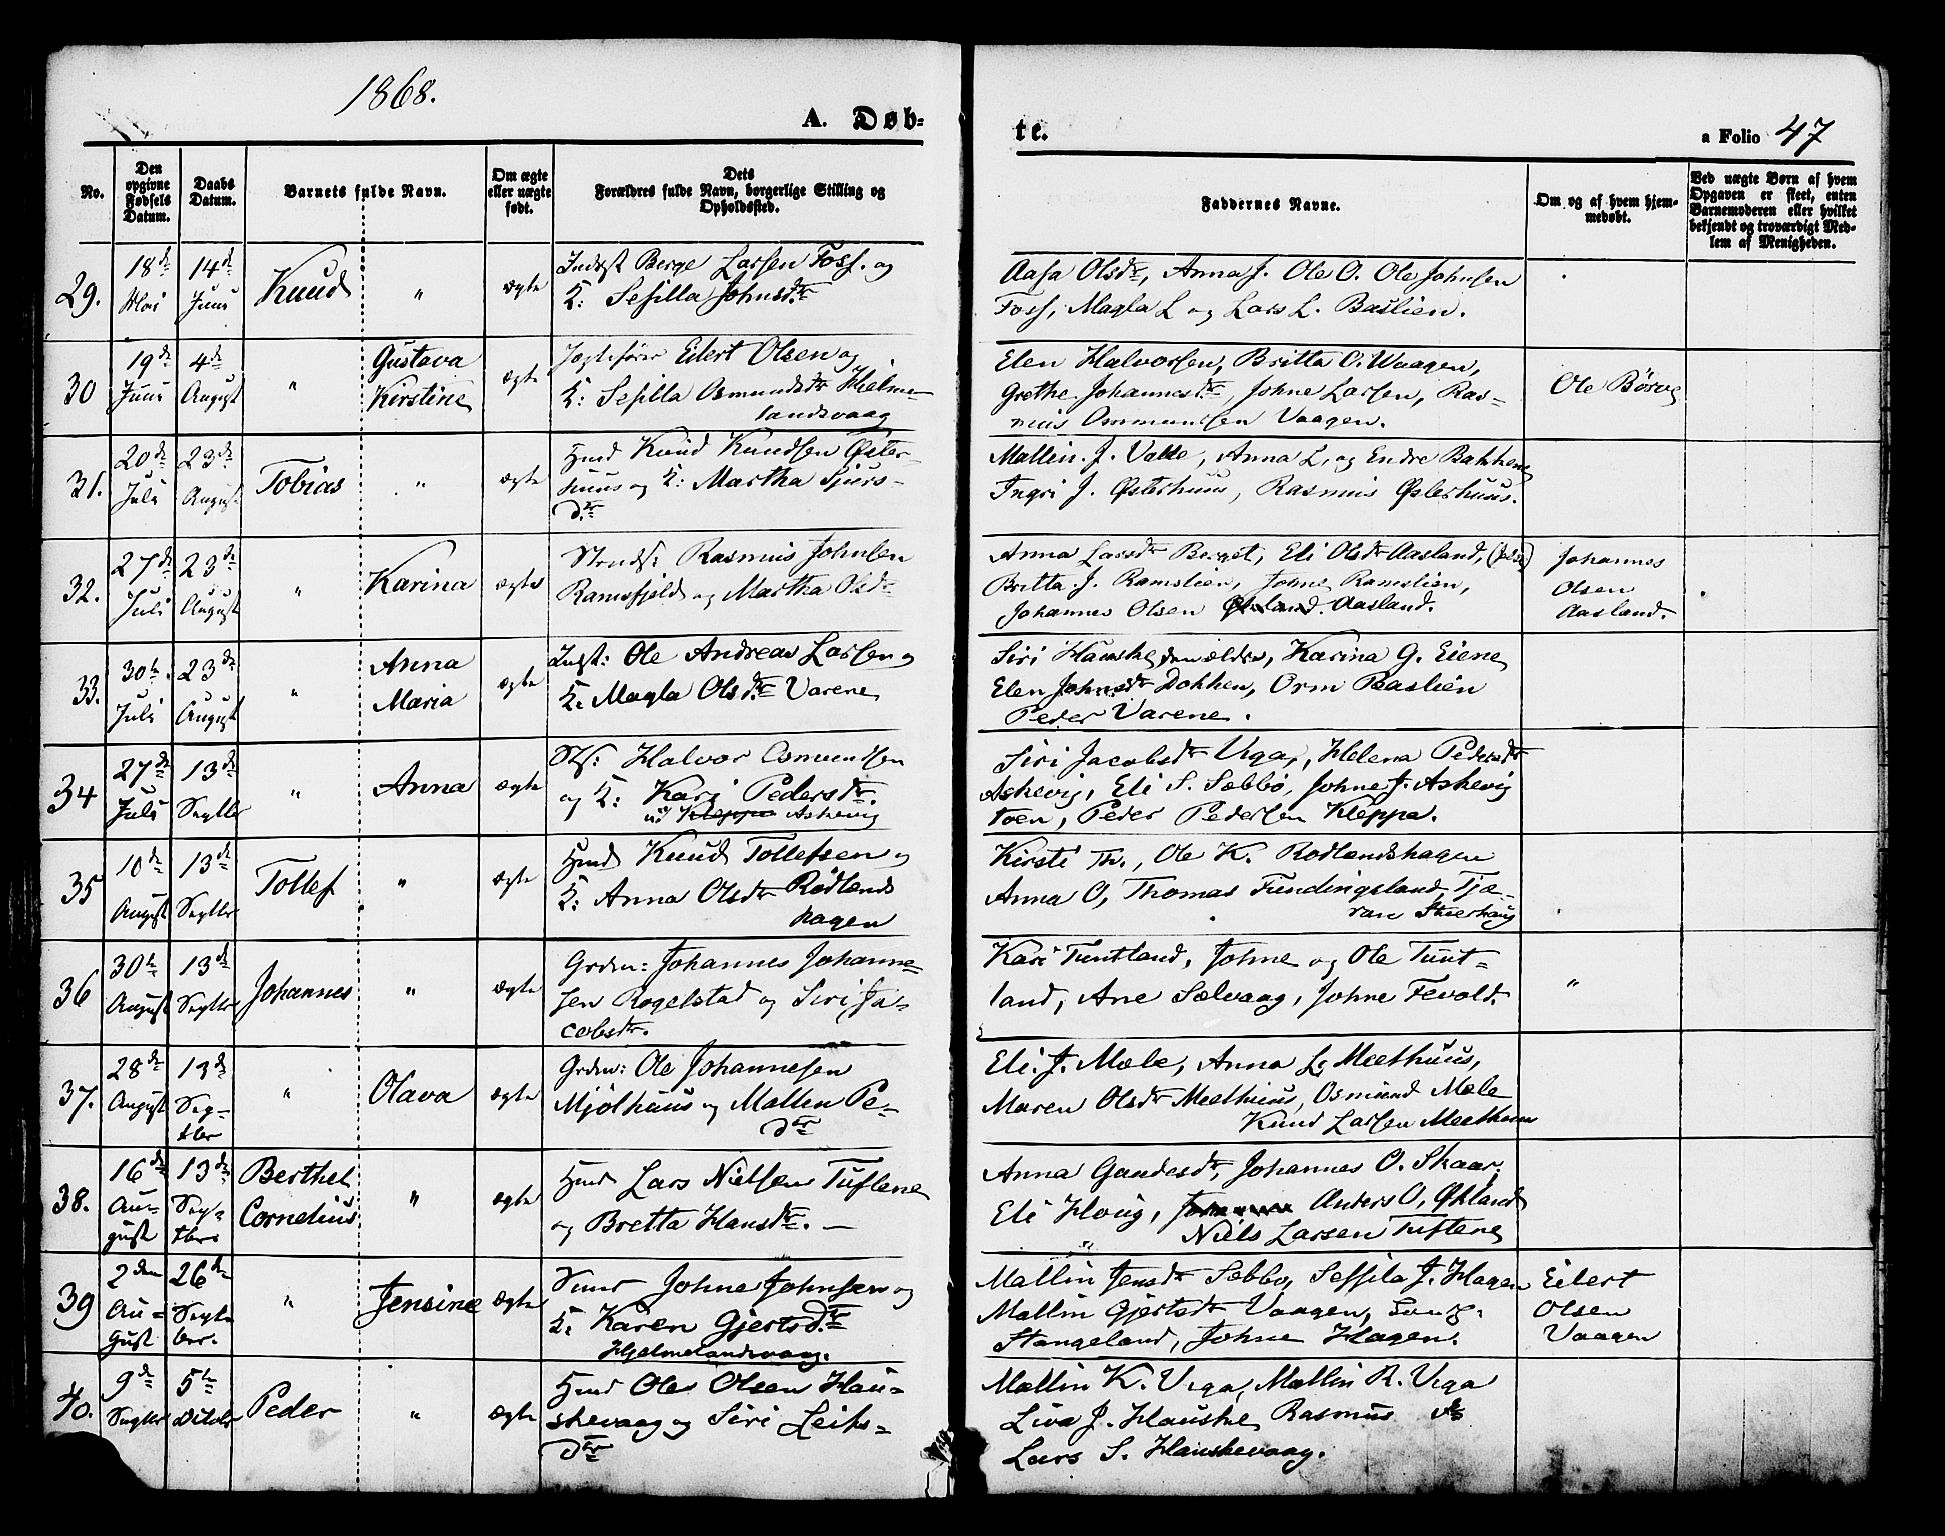 1868.
A. Døb-
te.
a Folio 47
No.
Den opgivne Fødsels Datum.
Daabs Datum.
Barnets fulde Navn.
Om ægte eller uægte født.
Dets Forældres fulde Navn, borgerlige Stilling og Opholdssted.
Faddernes Navne.
Om og af hvem hjemmedøbt.
Ved uægte Børn af hvem Opgaven er skeet, enten Barnemoderen eller hvilket bekjendt og troværdigt Medlem af Menigheden.
29.
18de Mai
14de Juni
Knud
"
ægte
Indst Berge Larsen Foss. og
K: Sesilla Johnsdtr
Aasa Olsdtr, Anna J. Ole O. Ole Johnsen
Foss, Magla L og Lars L. Baslien.
30
19de Juni
4de August
"
Gustava
Kirstine
ægte
Jagtefører Eilert Olsen og
K: Sesilla Osmundsdtr Hielme-
landsvaag
Elen Halvorsen, Britta O. Waagen,
Grethe Johannesdtr, Johne Larsen, Ras-
mus Ommundsen Vaagen.
Ole Børve
31.
20de Juli
23de August
Tobias
"
ægte
Hmd Knud Knudsen Øster-
huus og K: Martha Sjurs-
dtr
Mallin J. Valle, Anna L. og Endre Bakken
Ingri J. Østerhuus, Rasmus Østerhuus.
32.
27de Juli
23de August
"
Karina
ægte
Strnds: Rasmus Johnsen
Ramsfjeld og Martha Olsdtr
Anna Larsdtr Berget, Eli Olsdtr Aasland,
Britta J. Ramslien, Johne Ramslien,
Johannes Olsen Aasland.
Johannes
Olsen
Aasland.
33.
30te Juli
23de August
"
Anna
Maria
ægte
Indst: Ole Andreas Larsen og
K. Magla Olsdtr Varene
Siri Hauske den ældre, Karina G. Eiene
Elen Johnsdtr Dokken, Orm Baslien
Peder Varene.
34
27de Juli
13de Septbr
"
Anna
ægte
Sts: Halvor Osmundsen
og K: Kari Pedersdtr.
Kleppa Askevig
Siri Jacobsdtr Viga, Helena Pedersdtr
Askevig, Eli S. Sæbbø, Johne J. Askevig
toen, Peder Pedersen Kleppa.
35
10de August
13de Septbr
Tollef
"
ægte
Hmd Knud Tollefsen og
K: Anna Olsdtr Rødlands
hagen
Kirsti Th., Ole K. Rodlandshagen
Anna O, Thomas Fundingsland, Tjæ-
ran Steerhaug
36
30te August
13de Septbr
Johannes
"
ægte
Grdm: Johannes Johanne-
sen Rogelstad og Siri Ja-
cobsdtr.
Kari Tuntland, Johne og Ole Tunt-
land, Ane Sælvaag, Johne Fevold.
"
37.
28de August
13de Sep-
tbr
"
Olava
ægte
Grdm: Ole Johannesen
Mjølhuus og Mallin Pe-
dtr
Eli J. Mæle, Anna L. Meethuus,
Maren Olsdtr Meethuus, Osmund Mæle
Knud Larsen Meethuus
38.
16de Au-
gust
13de Sep-
tbr
Berthel
Cornelius
"
ægte
Hmd Lars Nielsen Tuftene
og Bretta Hansdtr. —
Anna Gundesdtr, Johannes O. Skaar,
Eli Houg, Anders O, Økland
Niels Larsen Tuftene
39
2den Au-
gust
26de Septe
ber.
"
Jensine
ægte
Johne Johnsen og
K: Karen Gjertsdtr
Hjelmelandsvaag.
Mallin Jensdtr Sebbø, Sessila J. Hagen
Mallin Gjertsdtr Vaagen,
Stangeland, Johne Hagen.
Eilert
Olsen
Vaagen
40.
9de Septbr
5te Octobr
Peder
"
ægte
Hmd Ole Olsen Hau-
skevaag og Siri Leifs-
dtr
Mallin K. Viga, Mallin R. Viga
Liva J. Hauske, Rasmus do
Lars S. Hauskevaag.